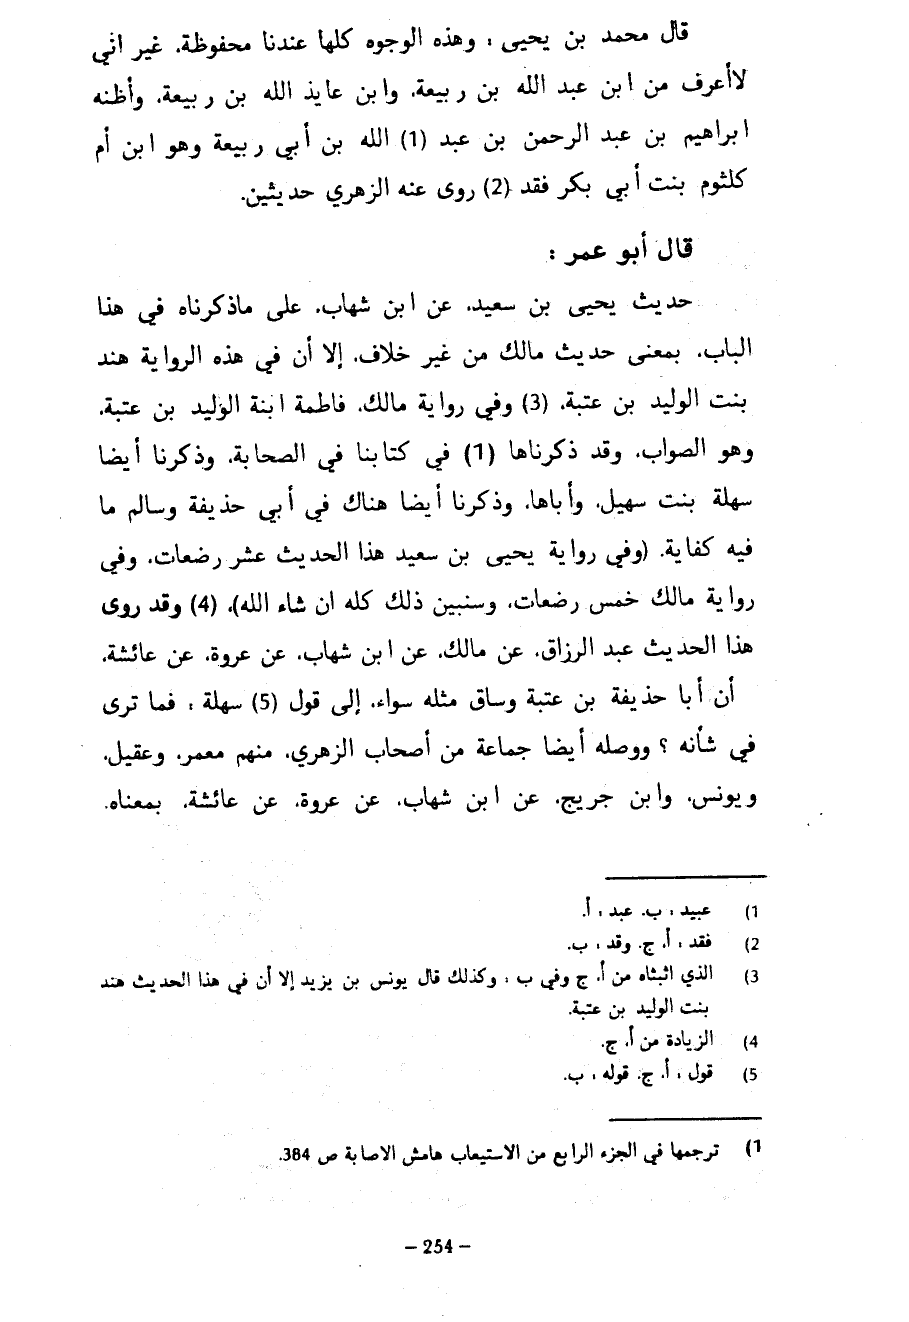 قال محمد بن يحيى : وهذه الوجوه كلها عندنا محفوظة. غير اني
لاأعرف من ابن عبد الله بن ربيعة. وابن عايذ الله بن ربيعة. وأظنه
ابراهيم بن عبد الرحمن بن عبد (1) الله بن أبي ربيعة وهو ابن أم
كلثوم بنت أبي بكر فقد (2) روى عنه الزهري حديثين.
قال أبو عمر :
حديث يحيى بن سعيد. عن ابن شهاب. على ماذكرناه في هذا
الباب. بمعنى حديث مالك من غير خلاف. إلا أن في هذه الرواية هند
بنت الوليد بن عتبة. (3) وفي رواية مالك. فاطمة ابنة الوليد بن عتبة.
وهو الصواب. وقد ذكرناها (1) في كتابنا في الصحابة. وذكرنا أيضا
سهلة بنت سهيل. وأباها. وذكرنا أيضا هناك في أبي حذيفة وسالم ما
فيه كفاية. (وفي رواية يحيى بن سعيد هذا الحديث عشر رضعات. وفي
رواية مالك خمس رضعات. وسنبين ذلك كله ان شاء الله). (4) وقد روى
هذا الحديث عبد الرزاق. عن مالك. عن ابن شهاب. عن عروة. عن عائشة.
أن أبا حذيفة بن عتبة وساق مثله سواء. إلى قول (5) سهلة : فما ترى
في شأنه ؟ ووصله أيضا جماعة من أصحاب الزهري. منهم معمر. وعقيل.
ويونس. وابن جريج. عن ابن شهاب. عن عروة. عن عائشة. بمعناه.
1) عبيد : ب. عبد : أ.
2) فقد : أ. ج. وقد : ب.
3) الذي اثبتاه من أ. ج وفي ب : وكذلك قال يونس بن يزيد إلا أن في هذا الحديث هند
بنت الوليد بن عتبة.
4) الزيادة من أ. ج.
5) قول : أ. ج. قوله : ب.
1) ترجمها في الجزء الرابع من الاستيعاب هامش الاصابة ص 384.
– 254 –